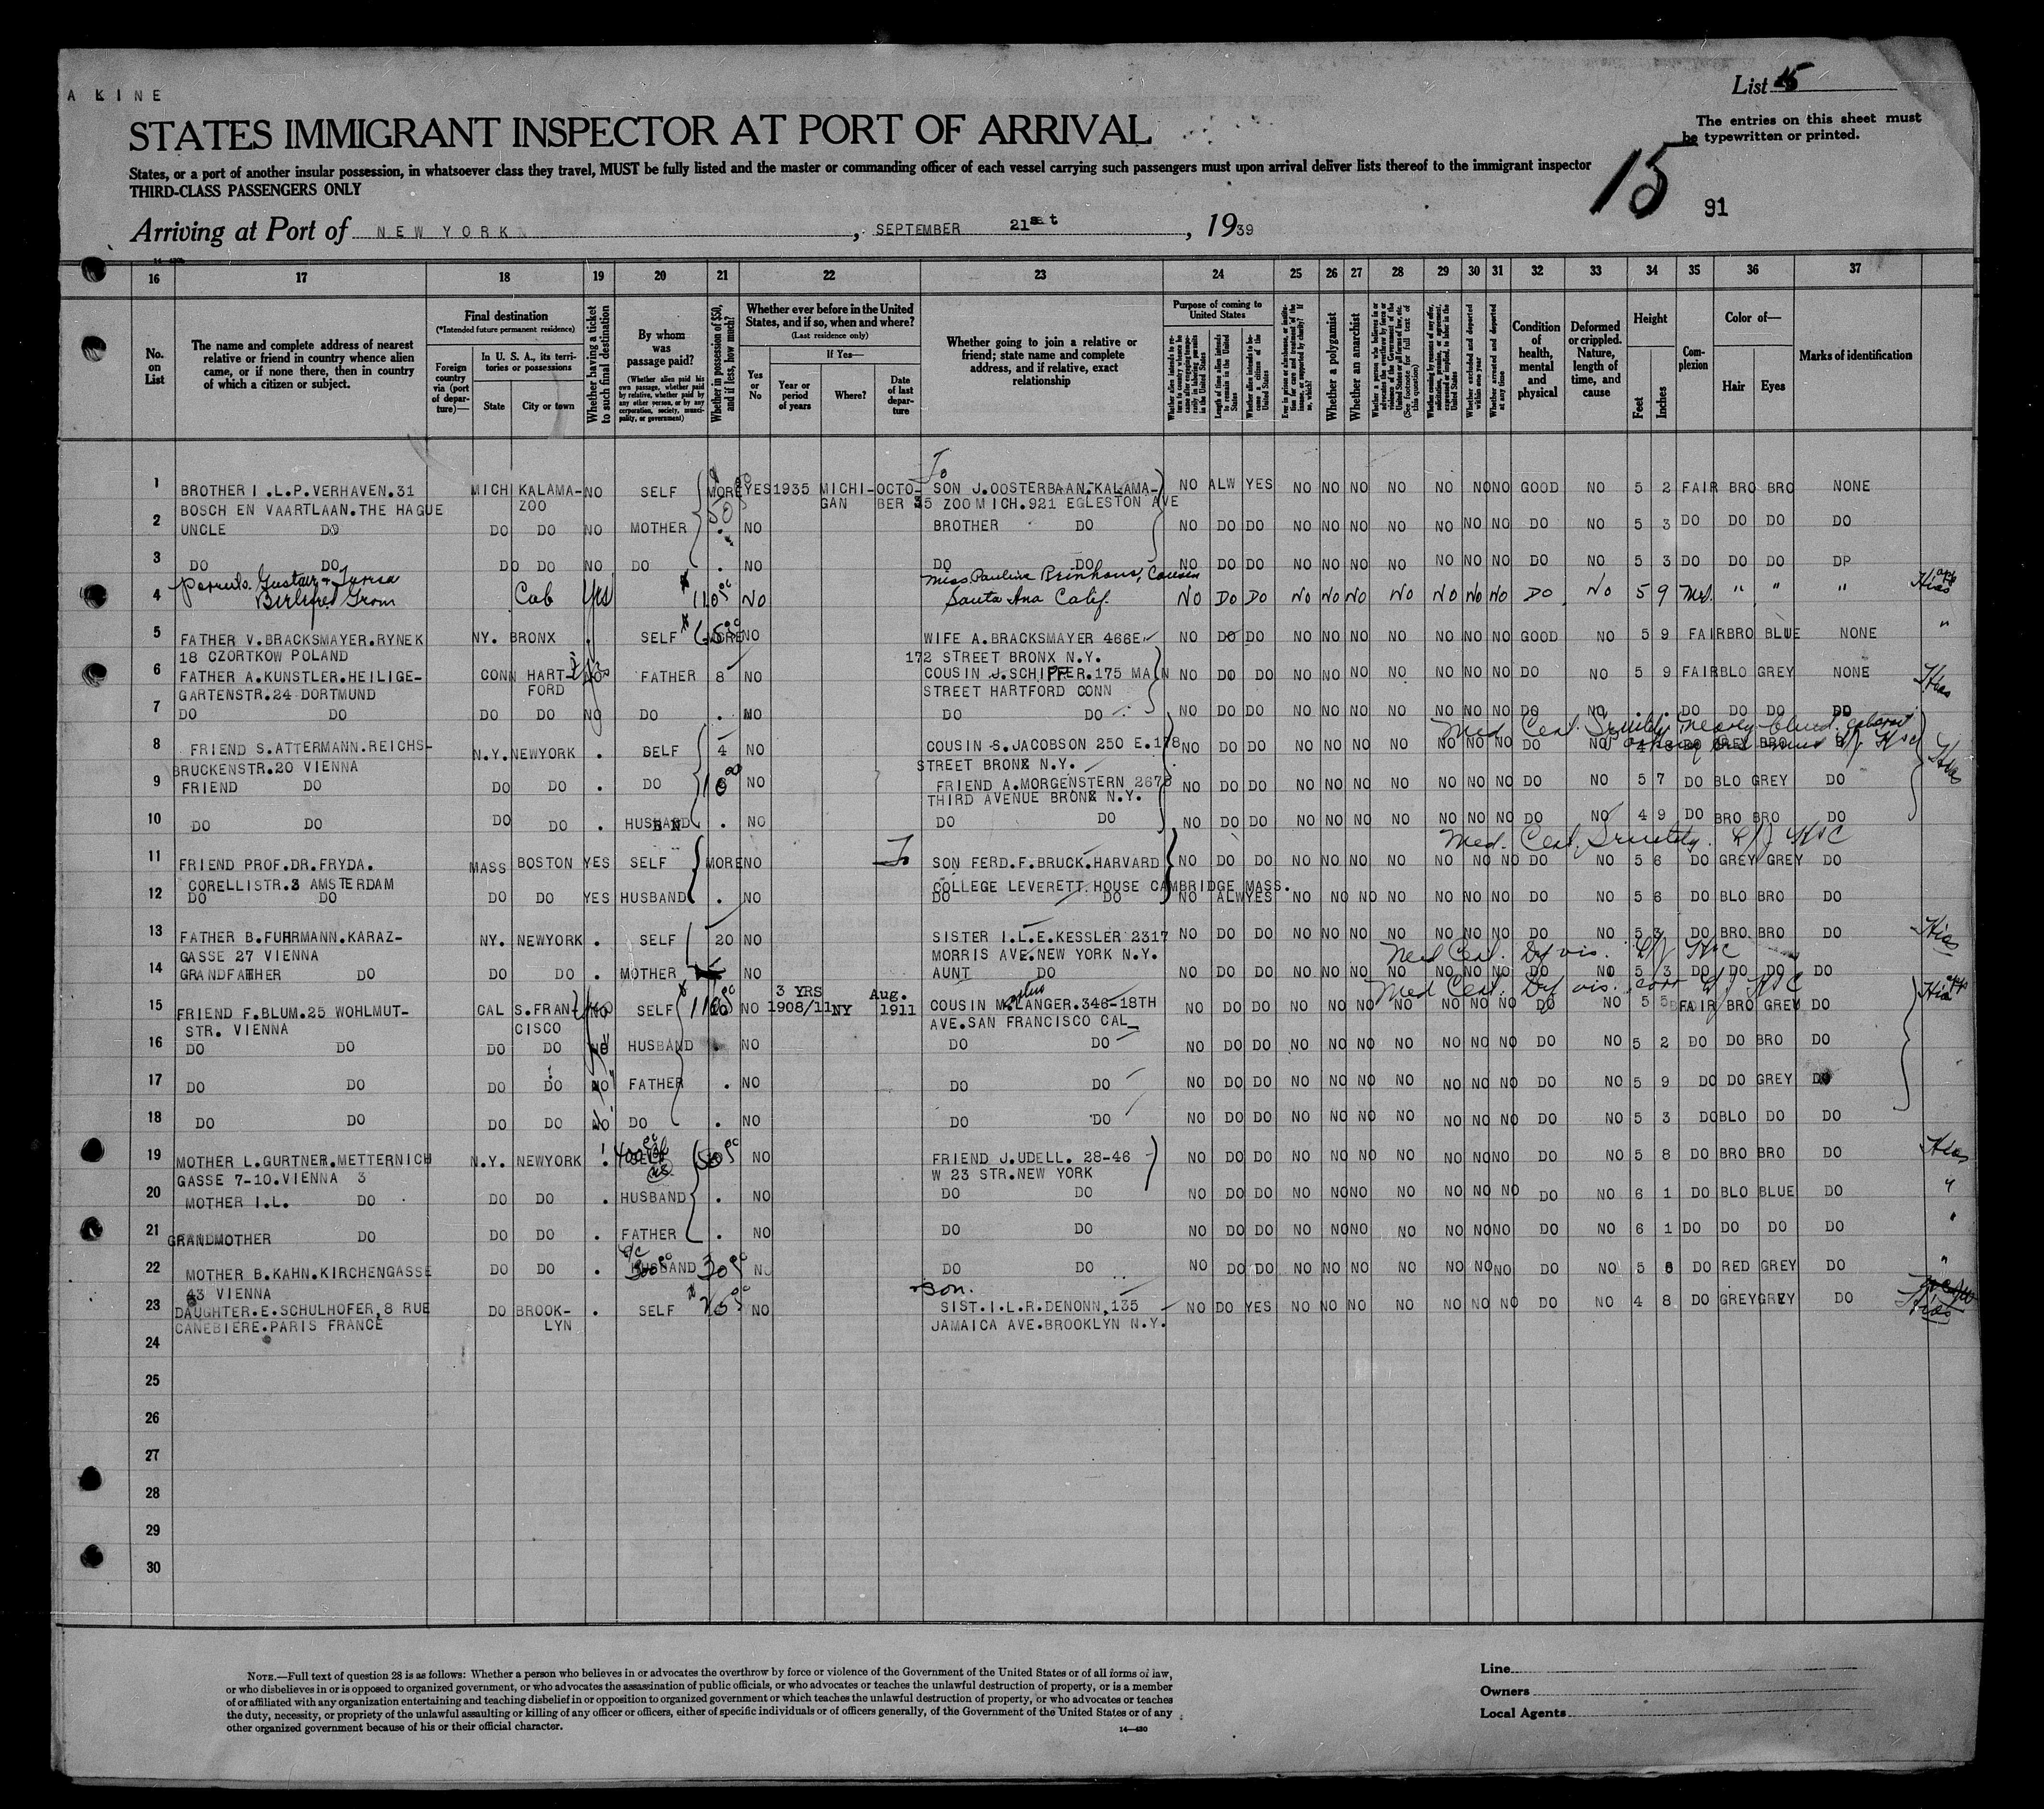 A KINE
List 15
STATES IMMIGRANT INSPECTOR AT PORT OF ARRIVAL
The entries on this sheet must
be typewritten or printed.
States, or a port of another insular possession, in whatsoever class they travel, MUST be fully listed and the master or commanding officer of each vessel carrying such passengers must upon arrival deliver lists thereof to the immigrant inspector
THIRD-CLASS PASSENGERS ONLY
15
91
Arriving at Port of NEW YORK, SEPTEMBER 21st, 1939
16 17 18 19 20 21 22 23 24 25 26 27 28 29 30 31 32 33 34 35 36 37
No. on List
The name and complete address of nearest
relative or friend in country whence alien
came, or if none there, then in country
of which a citizen or subject.
Final destination
(*Intended future permanent residence)
Foreign country via (port of departure)—
In U. S. A., its territories or possessions
State
City or town
Whether having a ticket to such final destination
By whom was passage paid?
(Whether alien paid his own passage, whether paid by relative, whether paid by any other person, or by any corporation, society, municipality, or government)
Whether in possession of $50, and if less, how much?
Whether ever before in the United
States, and if so, when and where?
(Last residence only)
Yes or No
If Yes—
Year or period of years
Where?
Date of last departure
Whether going to join a relative or
friend; state name and complete
address, and if relative, exact
relationship
Purpose of coming to United States
Length of time alien intends to remain in the United States
Whether alien intends to become a citizen of the United States
Whether a polygamist
Whether an anarchist
(See footnote for full text of this question)
Whether excluded and deported within one year
Whether arrested and deported at any time
Condition of health, mental and physical
Deformed or crippled. Nature, length of time, and cause
Height
Feet
Inches
Complexion
Color of—
Hair
Eyes
Marks of identification
To
1 BROTHER I.L.P.VERHAVEN.31 MICHI KALAMA- NO SELF MORE YES 1935 MICHI- OCTO- SON J.OOSTERBAAN.KALAMA- NO ALW YES NO NO NO NO NO NO NO GOOD NO 5 2 FAIR BRO BRO NONE
BOSCH EN VAARTLAAN.THE HAGUE ZOO GAN BER 35 ZOO MICH.921 EGLESTON AVE
2 UNCLE DO DO DO NO MOTHER . NO BROTHER DO NO DO DO NO NO NO NO NO NO NO DO NO 5 3 DO DO DO DO
3 DO DO DO DO NO DO . NO DO DO NO DO DO NO NO NO NO NO NO NO DO NO 5 3 DO DO DO DO
Miss Pauline Brinhaus, Cousin
4 Cal Yes 110 00 No Santa Ana Calif. No Do Do No No No No No No No DO No 5 9 Med. " " " Hias
5 FATHER V.BRACKSMAYER.RYNEK NY. BRONX . SELF MORE NO WIFE A.BRACKSMAYER 466E NO DO DO NO NO NO NO NO NO NO GOOD NO 5 9 FAIR BRO BLUE NONE "
18 CZORTKOW POLAND 172 STREET BRONX N.Y.
6 FATHER A.KUNSTLER.HEILIGE- CONN HART- NO FATHER 8 NO COUSIN J.SCHIFFER.175 MAIN NO DO DO NO NO NO NO NO NO NO DO NO 5 9 FAIR BLO GREY NONE Hias
GARTENSTR.24 DORTMUND FORD STREET HARTFORD CONN
7 DO DO DO DO NO DO . NO DO DO NO DO DO NO NO NO NO NO NO NO DO NO DO DO DO DO
Med. Cert. Senility
8 FRIEND S.ATTERMANN.REICHS- N.Y. NEWYORK . SELF 4 NO COUSIN S.JACOBSON 250 E.178 NO DO DO NO NO NO NO NO NO NO DO NO
BRUCKENSTR.20 VIENNA STREET BRONX N.Y. Hias
9 FRIEND DO DO DO . DO NO FRIEND A.MORGENSTERN 2676 NO DO DO NO NO NO NO NO NO NO DO NO 5 7 DO BLO GREY DO
THIRD AVENUE BRONX N.Y.
10 DO DO DO DO . HUSBAND . NO DO DO NO DO DO NO NO NO NO NO NO NO DO NO 4 9 DO BRO BRO DO
Med. Cert. Senility.
11 FRIEND PROF.DR.FRYDA. MASS BOSTON YES SELF MORE NO To SON FERD.F.BRUCK.HARVARD NO DO DO NO NO NO NO NO NO NO DO NO 5 6 DO GREY GREY DO
CORELLISTR.3 AMSTERDAM COLLEGE LEVERETT HOUSE CAMBRIDGE MASS.
12 DO DO DO DO YES HUSBAND . NO DO DO NO ALW YES NO NO NO NO NO NO NO DO NO 5 6 DO BLO BRO DO
13 FATHER B.FUHRMANN.KARAZ- NY. NEWYORK . SELF 20 NO SISTER I.L.E.KESSLER 2317 NO DO DO NO NO NO NO NO NO NO DO NO 5 3 DO BRO BRO DO Hias
GASSE 27 VIENNA MORRIS AVE.NEW YORK N.Y. Med Cert. Def vis.
14 GRANDFATHER DO DO DO . MOTHER NO AUNT DO NO DO DO NO NO NO NO NO NO NO DO NO 5 3 DO DO DO DO
3 YRS Aug. Med Cert. Def vis.
15 FRIEND F.BLUM.25 WOHLMUT- CAL S.FRAN- NO SELF NO 1908/11 NY 1911 COUSIN M.LANGER.346-18TH NO DO DO NO NO NO NO NO NO NO DO NO 5 5 FAIR BRO GREY DO Hias
STR. VIENNA CISCO AVE.SAN FRANCISCO CAL
16 DO DO DO DO NO HUSBAND . NO DO DO NO DO DO NO NO NO NO NO NO NO DO NO 5 2 DO DO BRO DO
17 DO DO DO DO NO FATHER . NO DO DO NO DO DO NO NO NO NO NO NO NO DO NO 5 9 DO DO GREY DO
18 DO DO DO DO NO DO . NO DO DO NO DO DO NO NO NO NO NO NO NO DO NO 5 3 DO BLO DO DO
19 MOTHER L.GURTNER.METTERNICH N.Y. NEWYORK . SELF NO FRIEND J.UDELL. 28-46 NO DO DO NO NO NO NO NO NO NO DO NO 5 8 DO BRO BRO DO Hias
GASSE 7-10.VIENNA 3 W 23 STR.NEW YORK
20 MOTHER I.L. DO DO DO . HUSBAND . NO DO DO NO DO DO NO NO NO NO NO NO NO DO NO 6 1 DO BLO BLUE DO "
21 GRANDMOTHER DO DO DO . FATHER . NO DO DO NO DO DO NO NO NO NO NO NO NO DO NO 6 1 DO DO DO DO "
22 MOTHER B.KAHN.KIRCHENGASSE DO DO . HUSBAND NO DO DO NO DO DO NO NO NO NO NO NO NO DO NO 5 DO RED GREY DO "
43 VIENNA son.
23 DAUGHTER.E.SCHULHOFER.8 RUE DO BROOK- . SELF NO SIST.I.L.R.DENONN.135 NO DO YES NO NO NO NO NO NO NO DO NO 4 8 DO GREY GREY DO Hias
CANEBIERE.PARIS FRANCE LYN JAMAICA AVE.BROOKLYN N.Y.
24
25
26
27
28
29
30
NOTE.—Full text of question 28 is as follows: Whether a person who believes in or advocates the overthrow by force or violence of the Government of the United States or of all forms of law,
or who disbelieves in or is opposed to organized government, or who advocates the assassination of public officials, or who advocates or teaches the unlawful destruction of property, or is a member
of or affiliated with any organization entertaining and teaching disbelief in or opposition to organized government or which teaches the unlawful destruction of property, or who advocates or teaches
the duty, necessity, or propriety of the unlawful assaulting or killing of any officer or officers, either of specific individuals or of officers generally, of the Government of the United States or of any
other organized government because of his or their official character.
14—430
Line
Owners
Local Agents